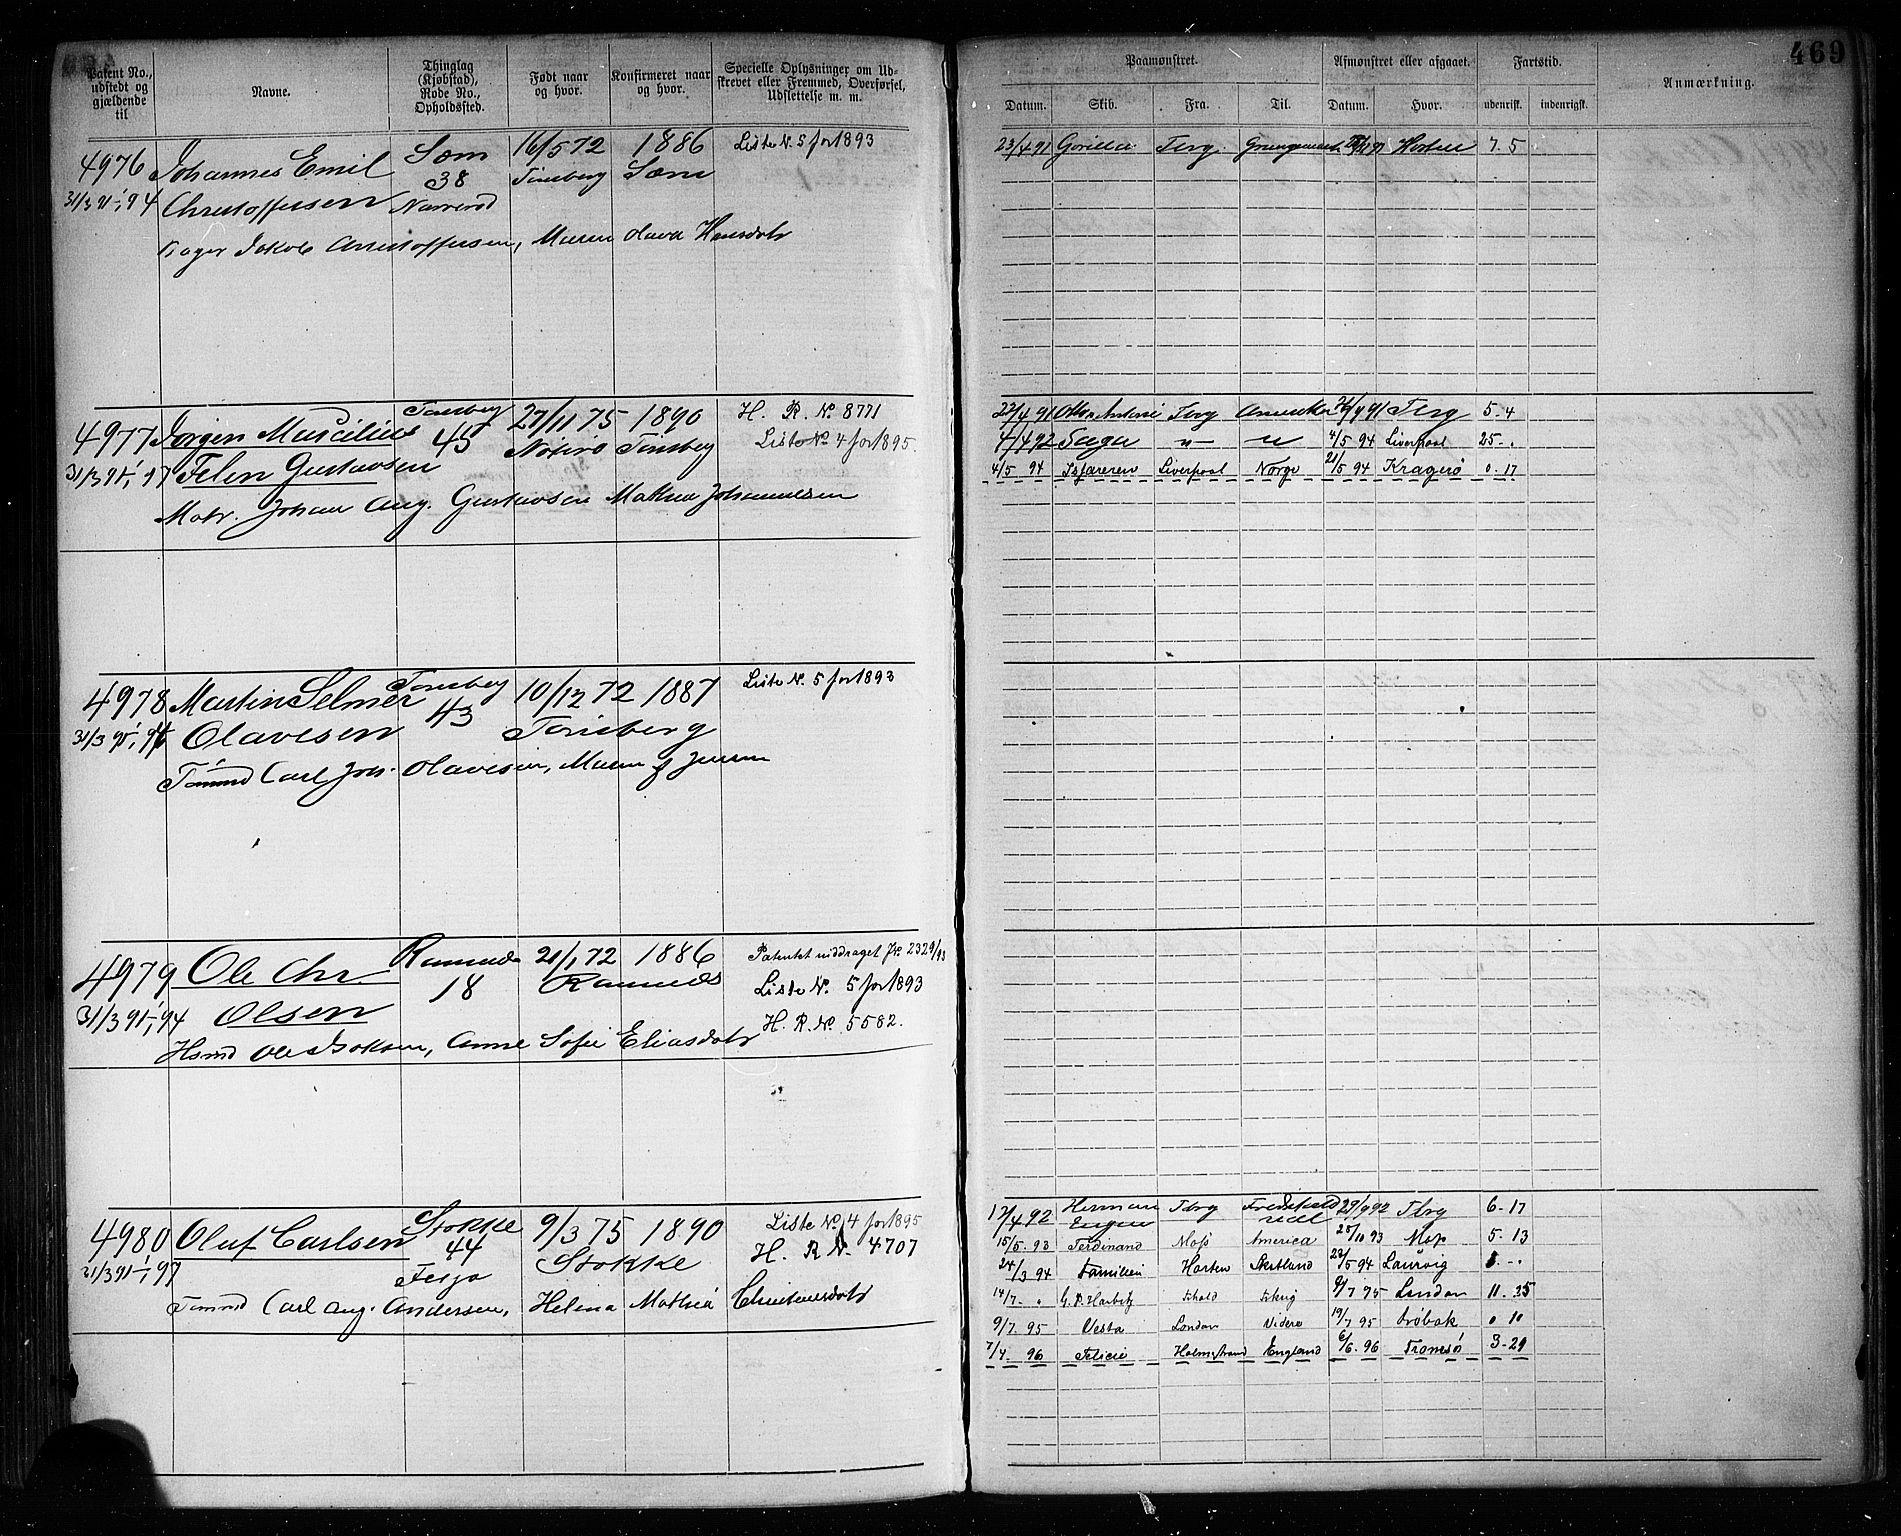 469
Patent No., udstedt og gjældende til
Navne.
Thinglag (Kjøbstad), Rode No., Opholdssted.
Født naar og hvor.
Konfirmeret naar og hvor.
Specielle Oplysninger om Udskrevet eller Fremmed, Overførsel, Udslettelse m. m.
Paamønstret.
Afmønstret eller afgaaet.
Fartstid.
Anmærkning.
Datum. Skib. Fra. Til. Datum. Hvor. udenrigsk. indenrigsk.
4976 Johannes Emil Sæm 16/5 72 1886 Liste N. 5 for 1893
38 Tønsberg Sæm
31/3 91, 94 Christoffersen
Jakob Christoffersen, Maren Olava Hansdatr
23/4 91 Gorilla Tbrg 91 Horten 7. 5
4977 Jørgen Marcilius Tønsberg 27/11 75 1890 H. R. No. 8771
45 Nøterø Tønsberg Liste No. 4 for 1895.
31/3 91, 97 Felen Gustavsen
Matr. Johan Aug. Gustavsen Mathea Johannesen
22/4 91 Tbrg Amerika 26/9 91 Tbrg 5. 4
4/4 92 Saga " " 4/5 94 Liverpool 25 - .
4/5 94 Isfareren Liverpool Norge 21/5 94 Kragerø 0. 17
4978 Martin Selmer Tønsberg 10/12 72 1887 Liste N. 5 for 1893
43
31/3 91, 94 Olavesen Tønsberg
Tømmd Carl Joh. Olavesen, Maren Jensen
4979 Ole Chr. Ramnæs 21/1 72 1886 Patentet inddraget J.No. 2329/93
18 Ramnæs Liste N. 5 for 1893
31/3 91, 94 Olsen H. R. No. 5582.
Hsmd Ole Isaksen, Anne Sofie Eliasdatr
4980 Oluf Carlsen Stokke 9/3 75 1890 Liste No. 4 for 1895
44 Stokke H. R. N. 4707
31/3 91, 97
Tømmd Carl Aug. Andersen, Helena Mathea Christensdatr
12/4 92 Herman Eugen Tbrg 29/9 92 Tbrg 6. 17
15/5. 93 Ferdinand Moss America 25/10 93 Moss 5. 13
24/3 94 Familien Horten Skotland 22/5 94 Laurvig
14/7. " G. P. Harbitz 9/7 95 London 11. 25
9/7. 95 Vesta London Viderø 19/7 95 Drøbak 0 10
7/4. 96 Felicie Holmestrand England 6/6. 96 Tromsø 3. 29